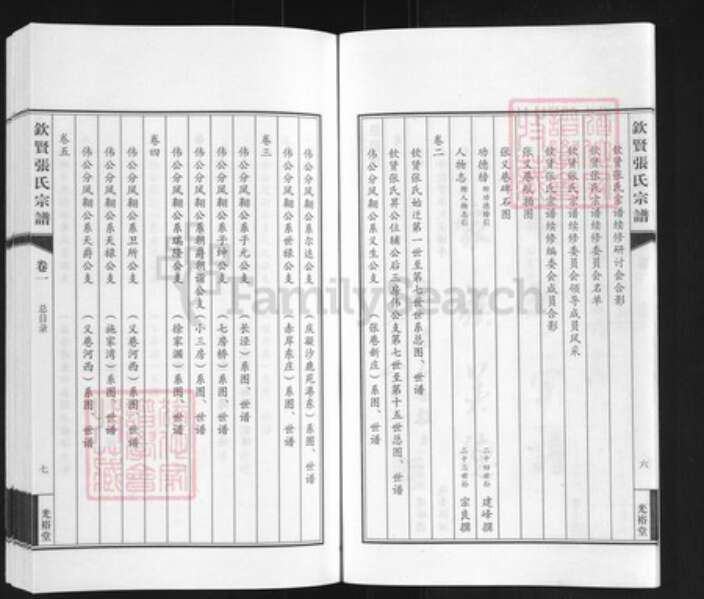 欽賢張氏宗譜
六
光裕堂
钦贤张氏宗谱续修研讨会合影
钦贤张氏宗谱续修委员会名单
钦贤张氏宗谱续修委员会领导成员风采
钦贤张氏宗谱续修编委会成员合影
张义巷航拍图
张义巷碑石图
功德榜 附功德榜引 二十四世孙 建峰撰
人物志 附人物志引 二十三世孙 宗良撰
卷二
钦贤张氏始迁第一世至第七世世系总图、世谱
钦贤张氏昇公位辅公后三房伟公支第七世至第十五世总图、世谱
伟公分凤翱公系义生公支 （张巷新庄）系图、世谱
伟公分凤翱公系尔达公支 （庆凝沙鹿苑港东）系图、世谱
伟公分凤翱公系世禄公支 （赤岸东庄）系图、世谱
卷三
伟公分凤翱公系子允公支 （长泾）系图、世谱
伟公分凤翱公系子绅公支 （七房桥）系图、世谱
伟公分凤翱公系朝爵朝谓公支 （小三房）系图、世谱
伟公分凤翱公系瑞隆公支 （徐家湖）系图、世谱
卷四
伟公分凤翱公系卫所公支 （义巷河西）系图、世谱
伟公分凤翱公系天禄公支 （施家湾）系图、世谱
伟公分凤翱公系天爵公支 （义巷河西）系图、世谱
卷五
欽賢張氏宗譜
卷一
总目录
七
光裕堂
FamilySearch